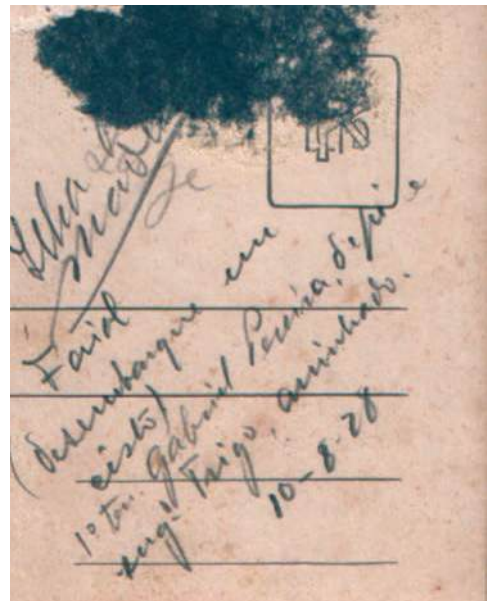 Ilha da
Madeira
Faial
(desembarque em
cisto)
1º ten. Gabriel Pereira, depois
engº Trigo, aninhado.
10-8-28